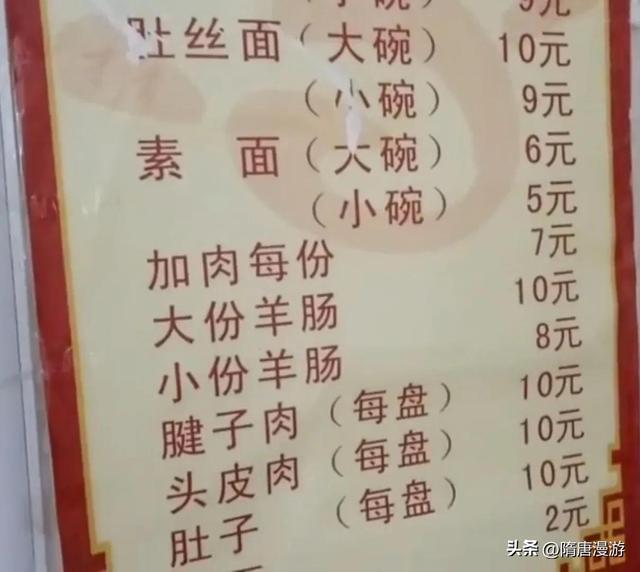 （小碗） 9元
肚丝面（大碗） 10元
（小碗） 9元
素 面（大碗） 6元
（小碗） 5元
加肉每份 7元
大份羊肠 10元
小份羊肠 8元
腱子肉（每盘） 10元
头皮肉（每盘） 10元
肚子（每盘） 10元
2元
头条 @隋唐漫游